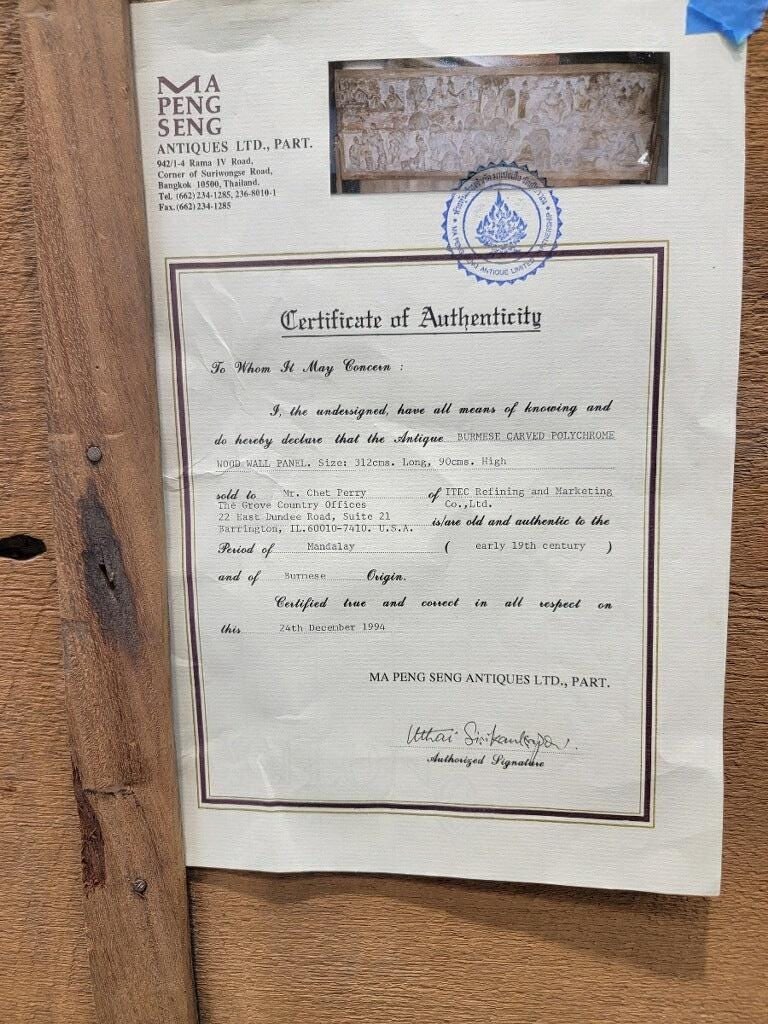 MA
PENG
SENG
ANTIQUES LTD., PART.
942/1-4 Rama IV Road,
Corner of Suriwongse Road,
Bangkok 10500, Thailand.
Tel. (662)234-1285, 236-8010-1
Fax.(662)234-1285
MA PENG SENG ANTIQUE LIMITED PARTNERSHIP
Certificate of Authenticity
To Whom It May Concern :
I, the undersigned, have all means of knowing and
do hereby declare that the Antique BURMESE CARVED POLYCHROME
WOOD WALL PANEL. Size: 312cms. Long, 90cms. High
sold to Mr. Chet Perry of ITEC Refining and Marketing
The Grove Country Offices Co.,Ltd.
22 East Dundee Road, Suite 21 is/are old and authentic to the
Barrington, IL.60010-7410. U.S.A.
Period of Mandalay ( early 19th century )
and of Burmese Origin.
Certified true and correct in all respect on
this 24th December 1994
MA PENG SENG ANTIQUES LTD., PART.
Uthai
Authorized Signature